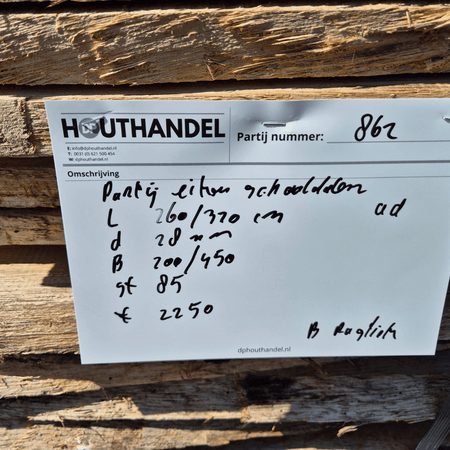 HOUTHANDEL
DP
E: info@dphouthandel.nl
T: 0031 (0) 621 500 454
W: dphouthandel.nl
Partij nummer: 862
Omschrijving
Partij eiken
L 260/320 cm ad
d 28 mm
B 200/450
st 85
€ 2250
B
dphouthandel.nl